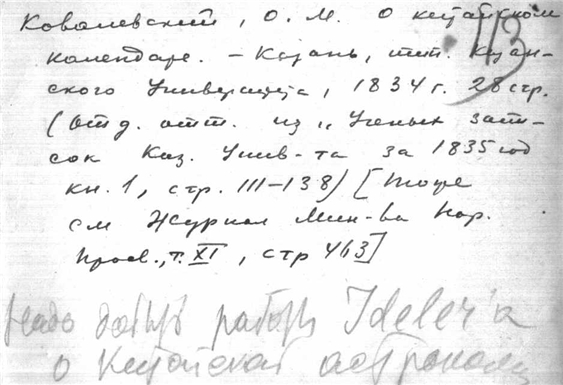 Ковалевский, О. М. О китайском
календаре. – Казань, тип. Казан-
ского Университета, 1834 г. 28 стр.
(Отд. отт. из „Ученых запи-
сок Каз. Унив-та за 1835 год
кн. 1, стр. 111–138) [Тоже
см Журнал Мин-ва Нар.
Просв., т. XI, стр 463]
надо добыть работы Ideler'а
о Китайской астрономии